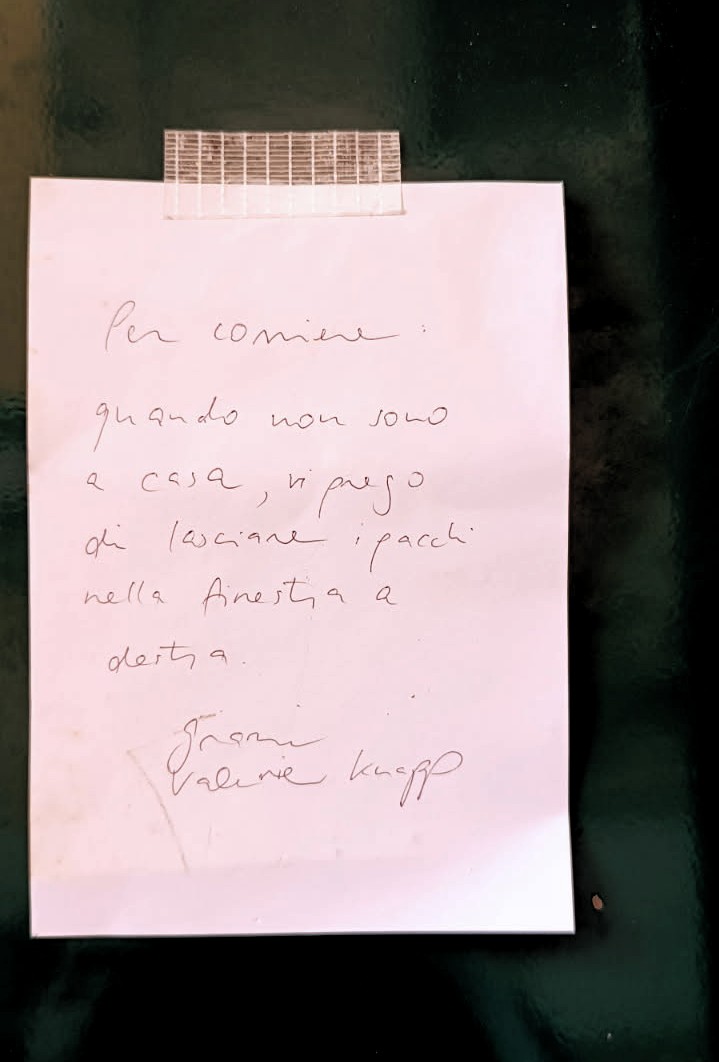 Per corriere:
quando non sono
a casa, vi prego
di lasciare i pacchi
nella finestra a
destra.
Grazie
Valerie Knapp